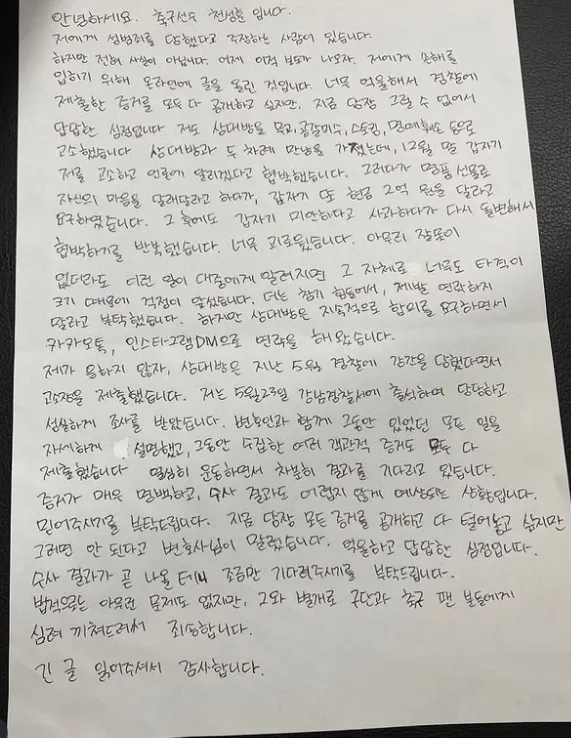 안녕하세요. 축구선수 천성훈 입니다.
저에게 성범죄를 당했다고 주장하는 사람이 있습니다.
하지만 전혀 사실이 아닙니다. 어제 이적 보도가 나오자, 저에게 손해를
입히기 위해 온라인에 글을 올린 것입니다. 너무 억울해서 경찰에
제출한 증거를 모두 다 공개하고 싶지만, 지금 당장 그럴 수 없어서
답답한 심정입니다 저도 상대방을 무고, 공갈미수, 스토킹, 명예훼손 등으로
고소했습니다 상대방과 두 차례 만남을 가졌는데, 12월 말 갑자기
저를 고소하고 언론에 알리겠다고 협박했습니다. 그러다가 명품 선물로
자신의 마음을 달래달라고 하다가, 갑자기 또 현금 2억 원을 달라고
요구하였습니다. 그 후에도 갑자기 미안하다고 사과하다가 다시 돌변해서
협박하기를 반복했습니다. 너무 괴로웠습니다. 아무리 잘못이
없더라도 이런 일이 대중에게 알려지면 그 자체로 너무도 타격이
크기 때문에 걱정이 앞섰습니다. 더는 참기 힘들어서, 제발 연락하지
말라고 부탁했습니다. 하지만 상대방은 지속적으로 합의를 요구하면서
카카오톡, 인스타그램DM으로 연락을 해 왔습니다.
제가 응하지 않자, 상대방은 지난 5월 경찰에 강간을 당했다면서
고소장을 제출했습니다. 저는 5월23일 강남경찰서에 출석하여 당당하고
성실하게 조사를 받았습니다. 변호인과 함께 그동안 있었던 모든 일을
자세하게 설명했고, 그동안 수집한 여러 객관적 증거도 모두 다
제출했습니다 열심히 운동하면서 차분히 결과를 기다리고 있습니다.
증거가 매우 명백하고, 수사 결과도 어렵지 않게 예상되는 상황입니다.
믿어주시기를 부탁드립니다. 지금 당장 모든 증거를 공개하고 다 털어놓고 싶지만
그러면 안 된다고 변호사님이 말렸습니다. 억울하고 답답한 심정입니다.
수사 결과가 곧 나올 테니 조금만 기다려주시기를 부탁드립니다.
법적으로는 아무런 문제도 없지만, 그와 별개로 구단과 축구 팬 분들에게
심려 끼쳐드려서 죄송합니다.
긴 글 읽어주셔서 감사합니다.